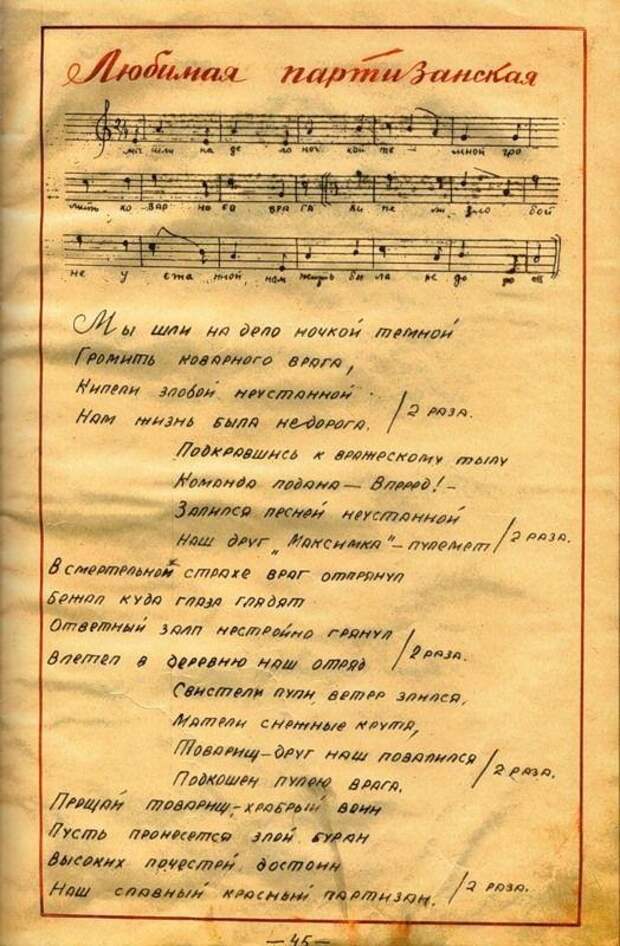 Любимая партизанская
мы шли на де ло ноч кой те мной гро
мить ко вар но го вра га ки пе ли зло бой
не у ста нной, нам жизнь бы ла не до ро га
Мы шли на дело ночкой темной
Громить коварного врага,
Кипели злобой неустанной
Нам жизнь была недорога. / 2 раза.
Подкравшись к вражескому тылу
Команда подана — Вперед! –
Залился песней неустанной
Наш друг „Максимка" – пулемет / 2 раза.
В смертельном страхе враг отпрянул
Бежал куда глаза глядят
Ответный залп нестройно грянул
Влетел в деревню наш отряд / 2 раза.
Свистели пули, ветер злился,
Мятели снежные крутя,
Товарищ–друг наш повалился
Подкошен пулею врага. / 2 раза.
Прощай товарищ,–храбрый воин
Пусть пронесется злой буран
Высоких почестей достоин
Наш славный красный партизан. / 2 раза.
— 45 —